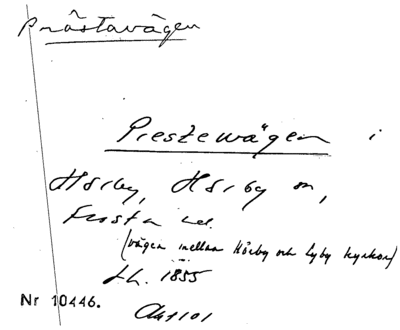 Prästavägen
Prestewägen i
Hörby, Hörby sn,
Frosta hd.
(vägen mellan Hörby och Lyby kyrkor)
1855
Nr 10446.